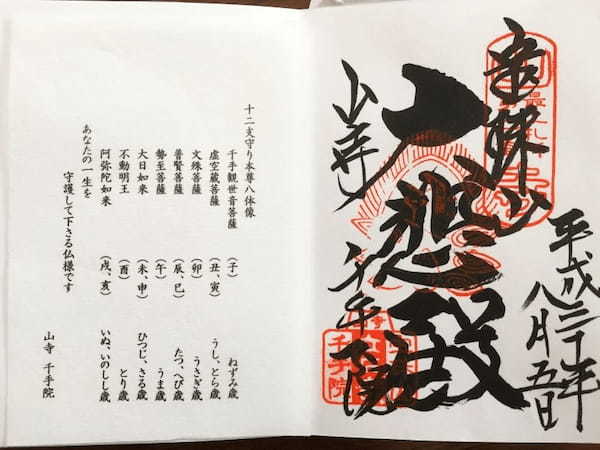 平成三十年
八月五日
寳珠山
大悲殿
山寺 千手院
千手院
十二支守り本尊八体像
千手観世音菩薩 (子) ねずみ歳
虚空蔵菩薩 (丑、寅) うし、とら歳
文殊菩薩 (卯) うさぎ歳
普賢菩薩 (辰、巳) たつ、へび歳
勢至菩薩 (午) うま歳
大日如来 (未、申) ひつじ、さる歳
不動明王 (酉) とり歳
阿弥陀如来 (戌、亥) いぬ、いのしし歳
あなたの一生を
守護して下さる仏様です
山寺 千手院